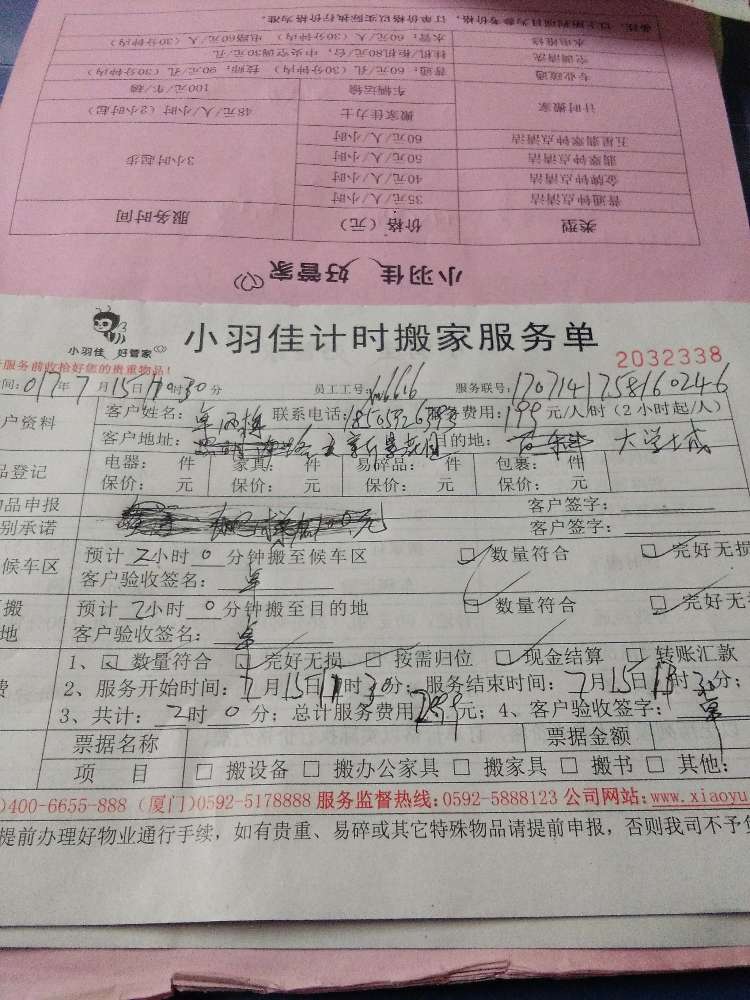 备注：以上所列项目为参考价格，订单价格以实际执行价格为准。
水电维修 水管：60元/人（30分钟内） 电路60元/人（30分钟内）
空调清洗 挂机/柜机80元/台，中央空调30元/孔
专业疏通 普通：60元/孔（30分钟内） 技师：90元/孔（30分钟内）
计时搬家 车辆运输 100元/车/趟
搬家佳力士 48元/人/小时（2小时起）
五星翡翠钟点清洁 60元/人/小时
翡翠钟点清洁 50元/人/小时 3小时起步
金牌钟点清洁 40元/人/小时
普通钟点清洁 35元/人/小时
类型 价格（元） 服务时间
小羽佳 好管家
小羽佳 好管家
小羽佳计时搬家服务单
2032338
服务前收检好您的贵重物品！
间：017年7月15日 时30分 员工工号： 服务联号：1707141758160246
户资料 客户姓名： 联系电话： 费用：199元/人时（2小时起/人）
客户地址： 目的地： 大学城
品登记 电器： 件 家具： 件 易碎品： 件 包裹： 件
保价： 元 保价： 元 保价： 元 保价： 元
物品申报 客户签字：
别承诺 元 客户签字：
候车区 预计2小时0分钟搬至候车区 数量符合 完好无损
客户验收签名：卓
搬 预计2小时0分钟搬至目的地 数量符合 完好无
地 客户验收签名：卓
1、 数量符合 完好无损 按需归位 现金结算 转账汇款
费 2、服务开始时间：7月15日11时30分；服务结束时间：7月15日13时30分；
3、共计：2时0分；总计服务费用299元；4、客户验收签字：卓
票据名称 票据金额
项 目 搬设备 搬办公家具 搬家具 搬书 其他：
)400-6655-888 (厦门)0592-5178888 服务监督热线：0592-5888123 公司网站：www.xiaoyu
提前办理好物业通行手续，如有贵重、易碎或其它特殊物品请提前申报，否则我司不予